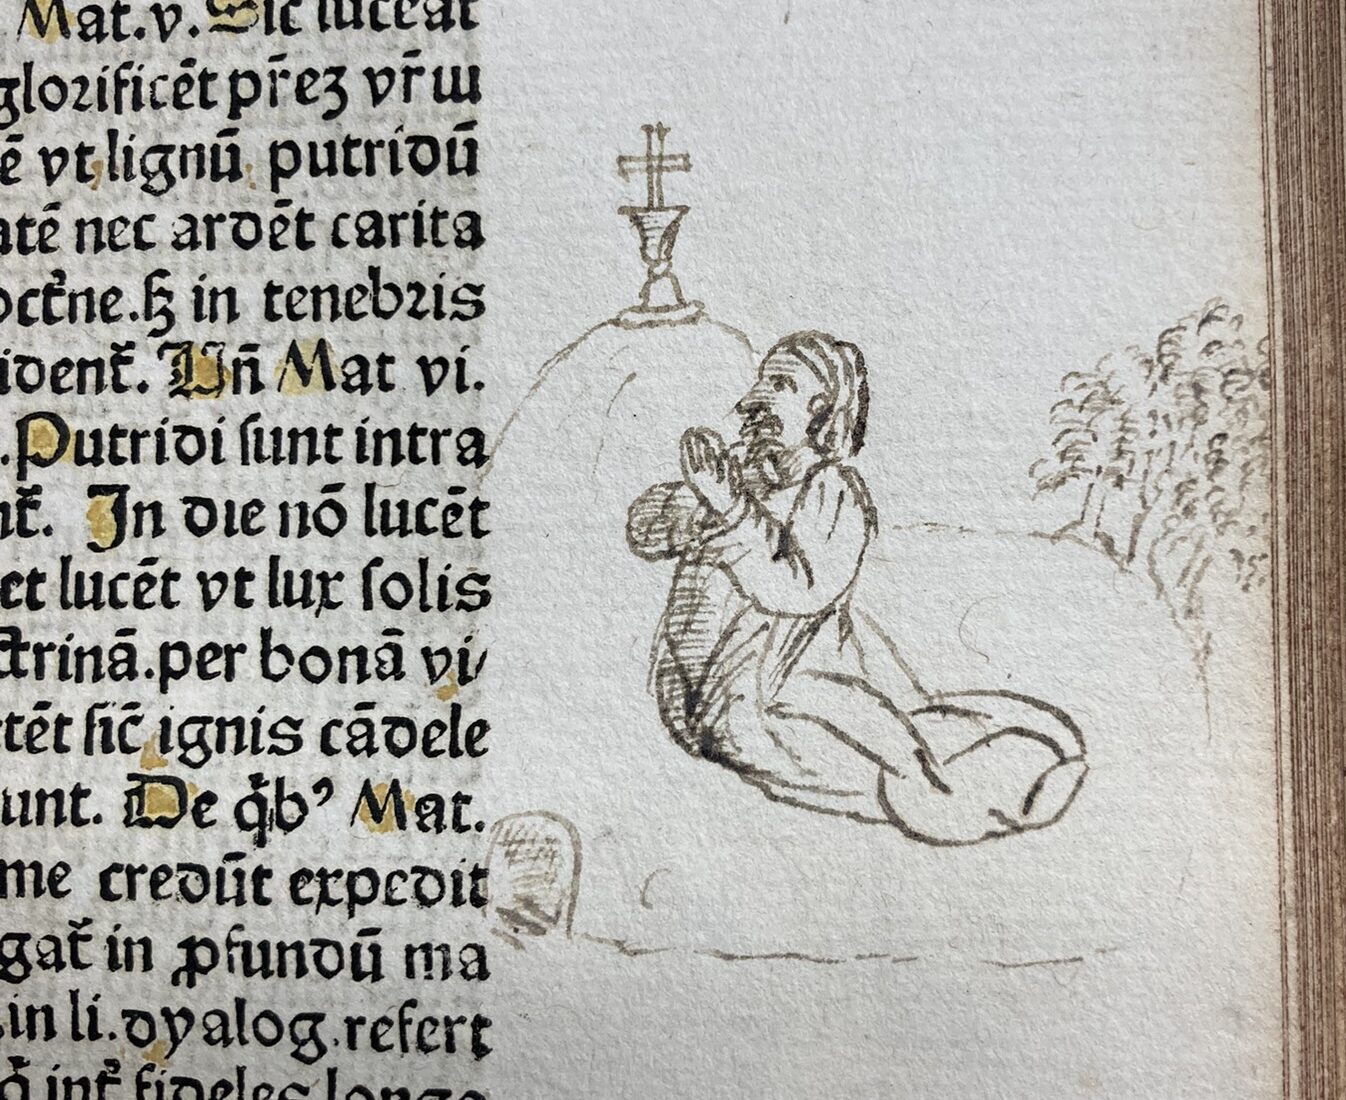 Mat.v. Sic luceat
glorificēt pr̄eꝫ vr̄m
ē vt lignū putridū
atē nec ardēt carita
octr̄ne.ß in tenebris
ident̄. Un̄ Mat vi.
. Putridi ſunt intra
nt̄. In die nō lucēt
et lucēt vt lux ſolis
ctrinā.per bonā vi/
tēt ſic̄ ignis cādele
unt. De q̄bꝰ Mat.
me credūt expedit
gat̄ in ꝓfundū ma
.in li.dyalog.refert
q̄ int̄ fideles longe